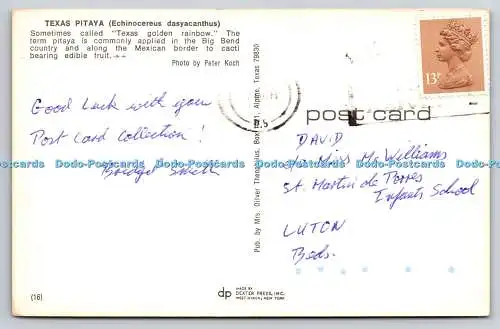 TEXAS PITAYA (Echinocereus dasyacanthus)
Sometimes called "Texas golden rainbow." The
term pitaya is commonly applied in the Big Bend
country and along the Mexican border to cacti
bearing edible fruit.
Photo by Peter Koch
Good Luck with your
Post Card Collection!
Smith
(16)
Pub. by Mrs. Oliver Alpine, Texas 79830
dp
MADE BY
DEXTER PRESS, INC.
WEST NYACK, NEW YORK
13P
post card
DAVID
Miss M. Williams
St. Martin de Porres
Infants School
LUTON
Beds.
Dodo-Postcards Dodo-Postcards Dodo-Postcards Dodo-Postcards Dodo-Postcards Dodo-Postcards